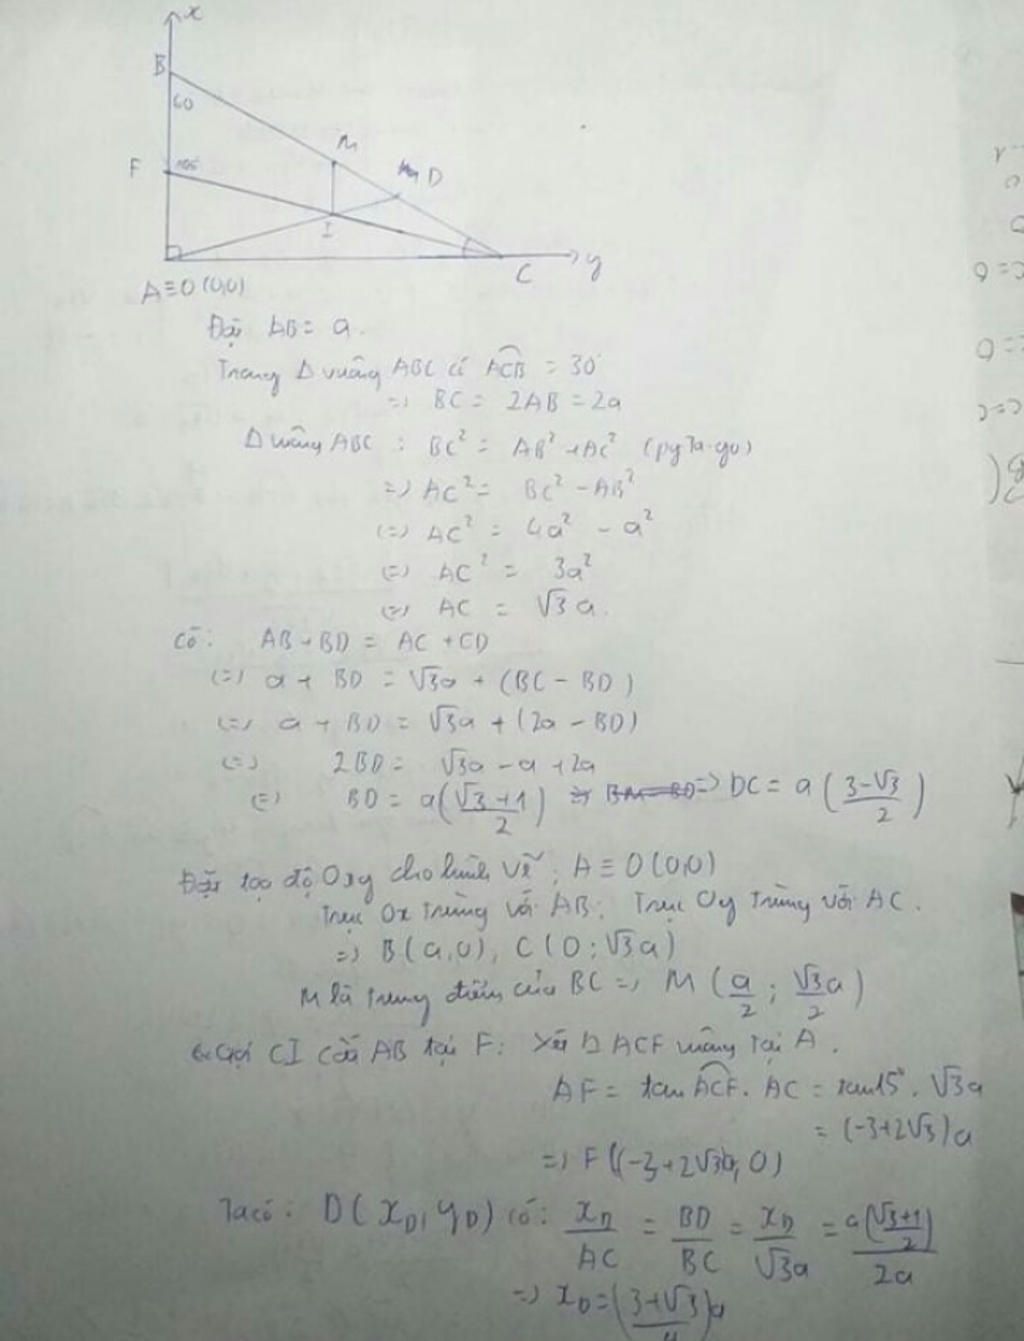 x
B
60
M
F 105
D
I
C y
A≡O(0,0)
Đặt AB = a.
Trong Δ vuông ABC có ACB = 30°
=> BC = 2AB = 2a
Δ vuông ABC : BC² = AB² + AC² (pytago)
=> AC² = BC² - AB²
(=) AC² = 4a² - a²
(=) AC² = 3a²
(=) AC = √3 a.
Có: AB + BD = AC + CD
(=) a + BD = √3a + (BC - BD)
(=) a + BD = √3a + (2a - BD)
(=) 2BD = √3a - a + 2a
(=) BD = a(√3+1 / 2) => DC = a(3-√3 / 2)
Đặt tọa độ Oxy cho hình vẽ; A ≡ O(0,0)
Trục Ox trùng với AB; Trục Oy trùng với AC.
=> B(a,0), C(0;√3a)
M là trung điểm của BC => M(a/2; √3a/2)
Gọi CI cắt AB tại F: Xét Δ ACF vuông tại A.
AF = tan ACF. AC = tan15°. √3a
= (-3+2√3)a
=> F((-3+2√3)a, 0)
Ta có: D(xD, yD) có: xD/AC = BD/BC = xD/√3a = a(√3+1 / 2)/2a
=> xD = (3+√3 / 4)a